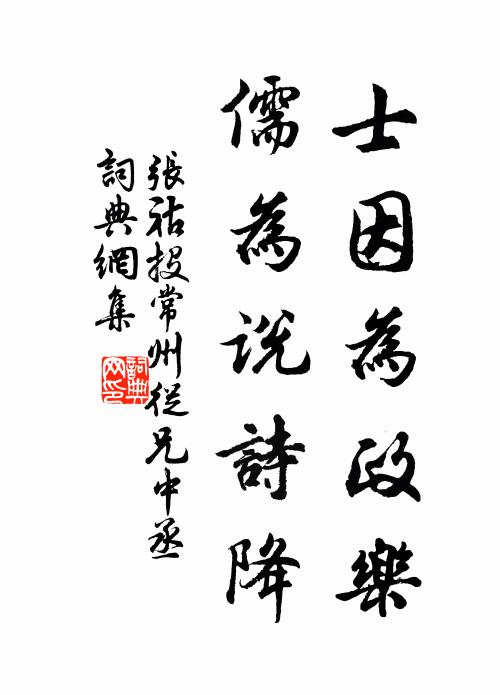 士因為政樂
儒為說詩降
張祜投常州從兄中丞
詞典網集
詞典網印